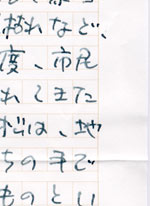 枯れなど、
度、市民
れてきた
松は、地
ちの手で
ものとい